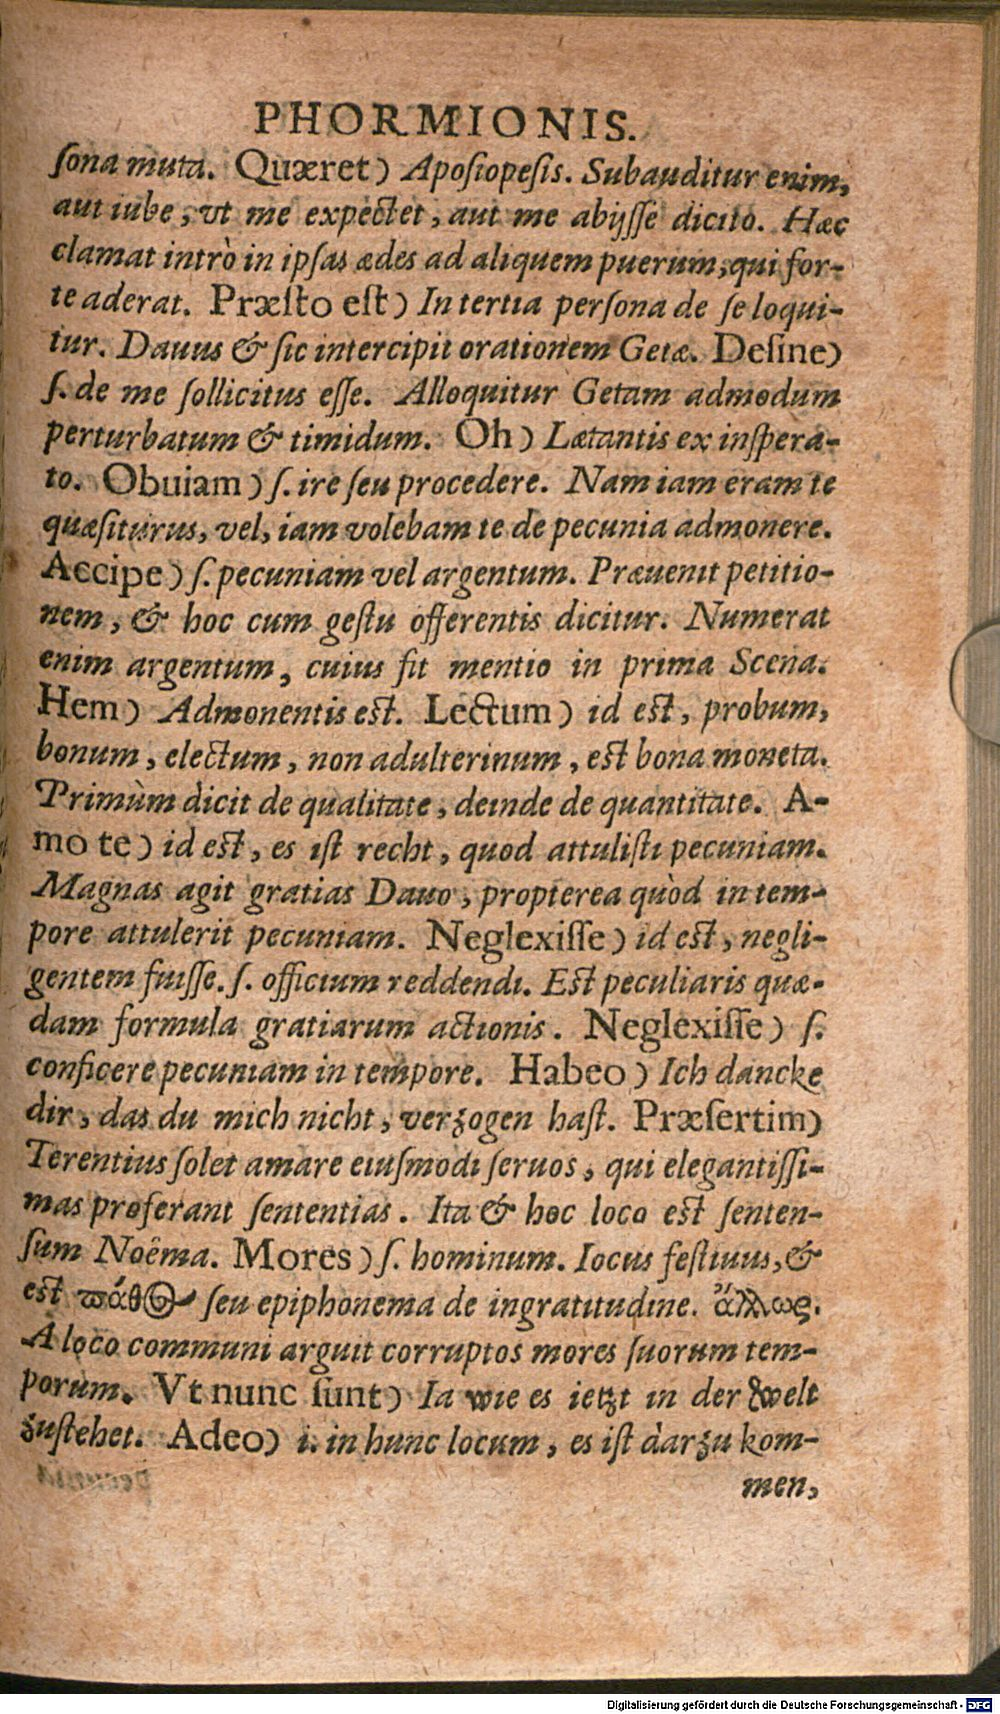 PHORMIONIS.
ſona muta. Quæret) Apoſiopeſis. Subauditur enim,
aut iube, vt me expectet, aut me abijſſe dicito. Hæc
clamat intrò in ipſas ædes ad aliquem puerum, qui for-
te aderat. Præſto eſt) In tertia perſona de ſe loqui-
tur. Dauus & ſic intercipit orationem Getæ. Deſine)
ſ. de me ſollicitus eſſe. Alloquitur Getam admodum
perturbatum & timidum. Oh) Lætantis ex inſpera-
to. Obuiam) ſ. ire ſeu procedere. Nam iam eram te
quæſiturus, vel, iam volebam te de pecunia admonere.
Accipe) ſ. pecuniam vel argentum. Præuenit petitio-
nem, & hoc cum geſtu offerentis dicitur. Numerat
enim argentum, cuius fit mentio in prima Scena.
Hem) Admonentis eſt. Lectum) id eſt, probum,
bonum, electum, non adulterinum, eſt bona moneta.
Primùm dicit de qualitate, deinde de quantitate. A-
mo te) id eſt, es iſt recht, quod attuliſti pecuniam.
Magnas agit gratias Dauo, propterea quòd in tem-
pore attulerit pecuniam. Neglexiſſe) id eſt, negli-
gentem fuiſſe. ſ. officium reddendi. Eſt peculiaris quæ-
dam formula gratiarum actionis. Neglexiſſe) ſ.
conficere pecuniam in tempore. Habeo) Ich dancke
dir, das du mich nicht, verzogen haſt. Præſertim)
Terentius ſolet amare eiuſmodi ſeruos, qui elegantiſſi-
mas proferant ſententias. Ita & hoc loco eſt ſenten-
ſum Noëma. Mores) ſ. hominum. Iocus feſtiuus, &
eſt πάθος ſeu epiphonema de ingratitudine. ἄλλως.
A loco communi arguit corruptos mores ſuorum tem-
porum. Vt nunc ſunt) Ia wie es ietzt in der Welt
zuſtehet. Adeo) i. in hunc locum, es iſt darzu kom-
men,
Digitalisierung gefördert durch die Deutsche Forschungsgemeinschaft - DFG